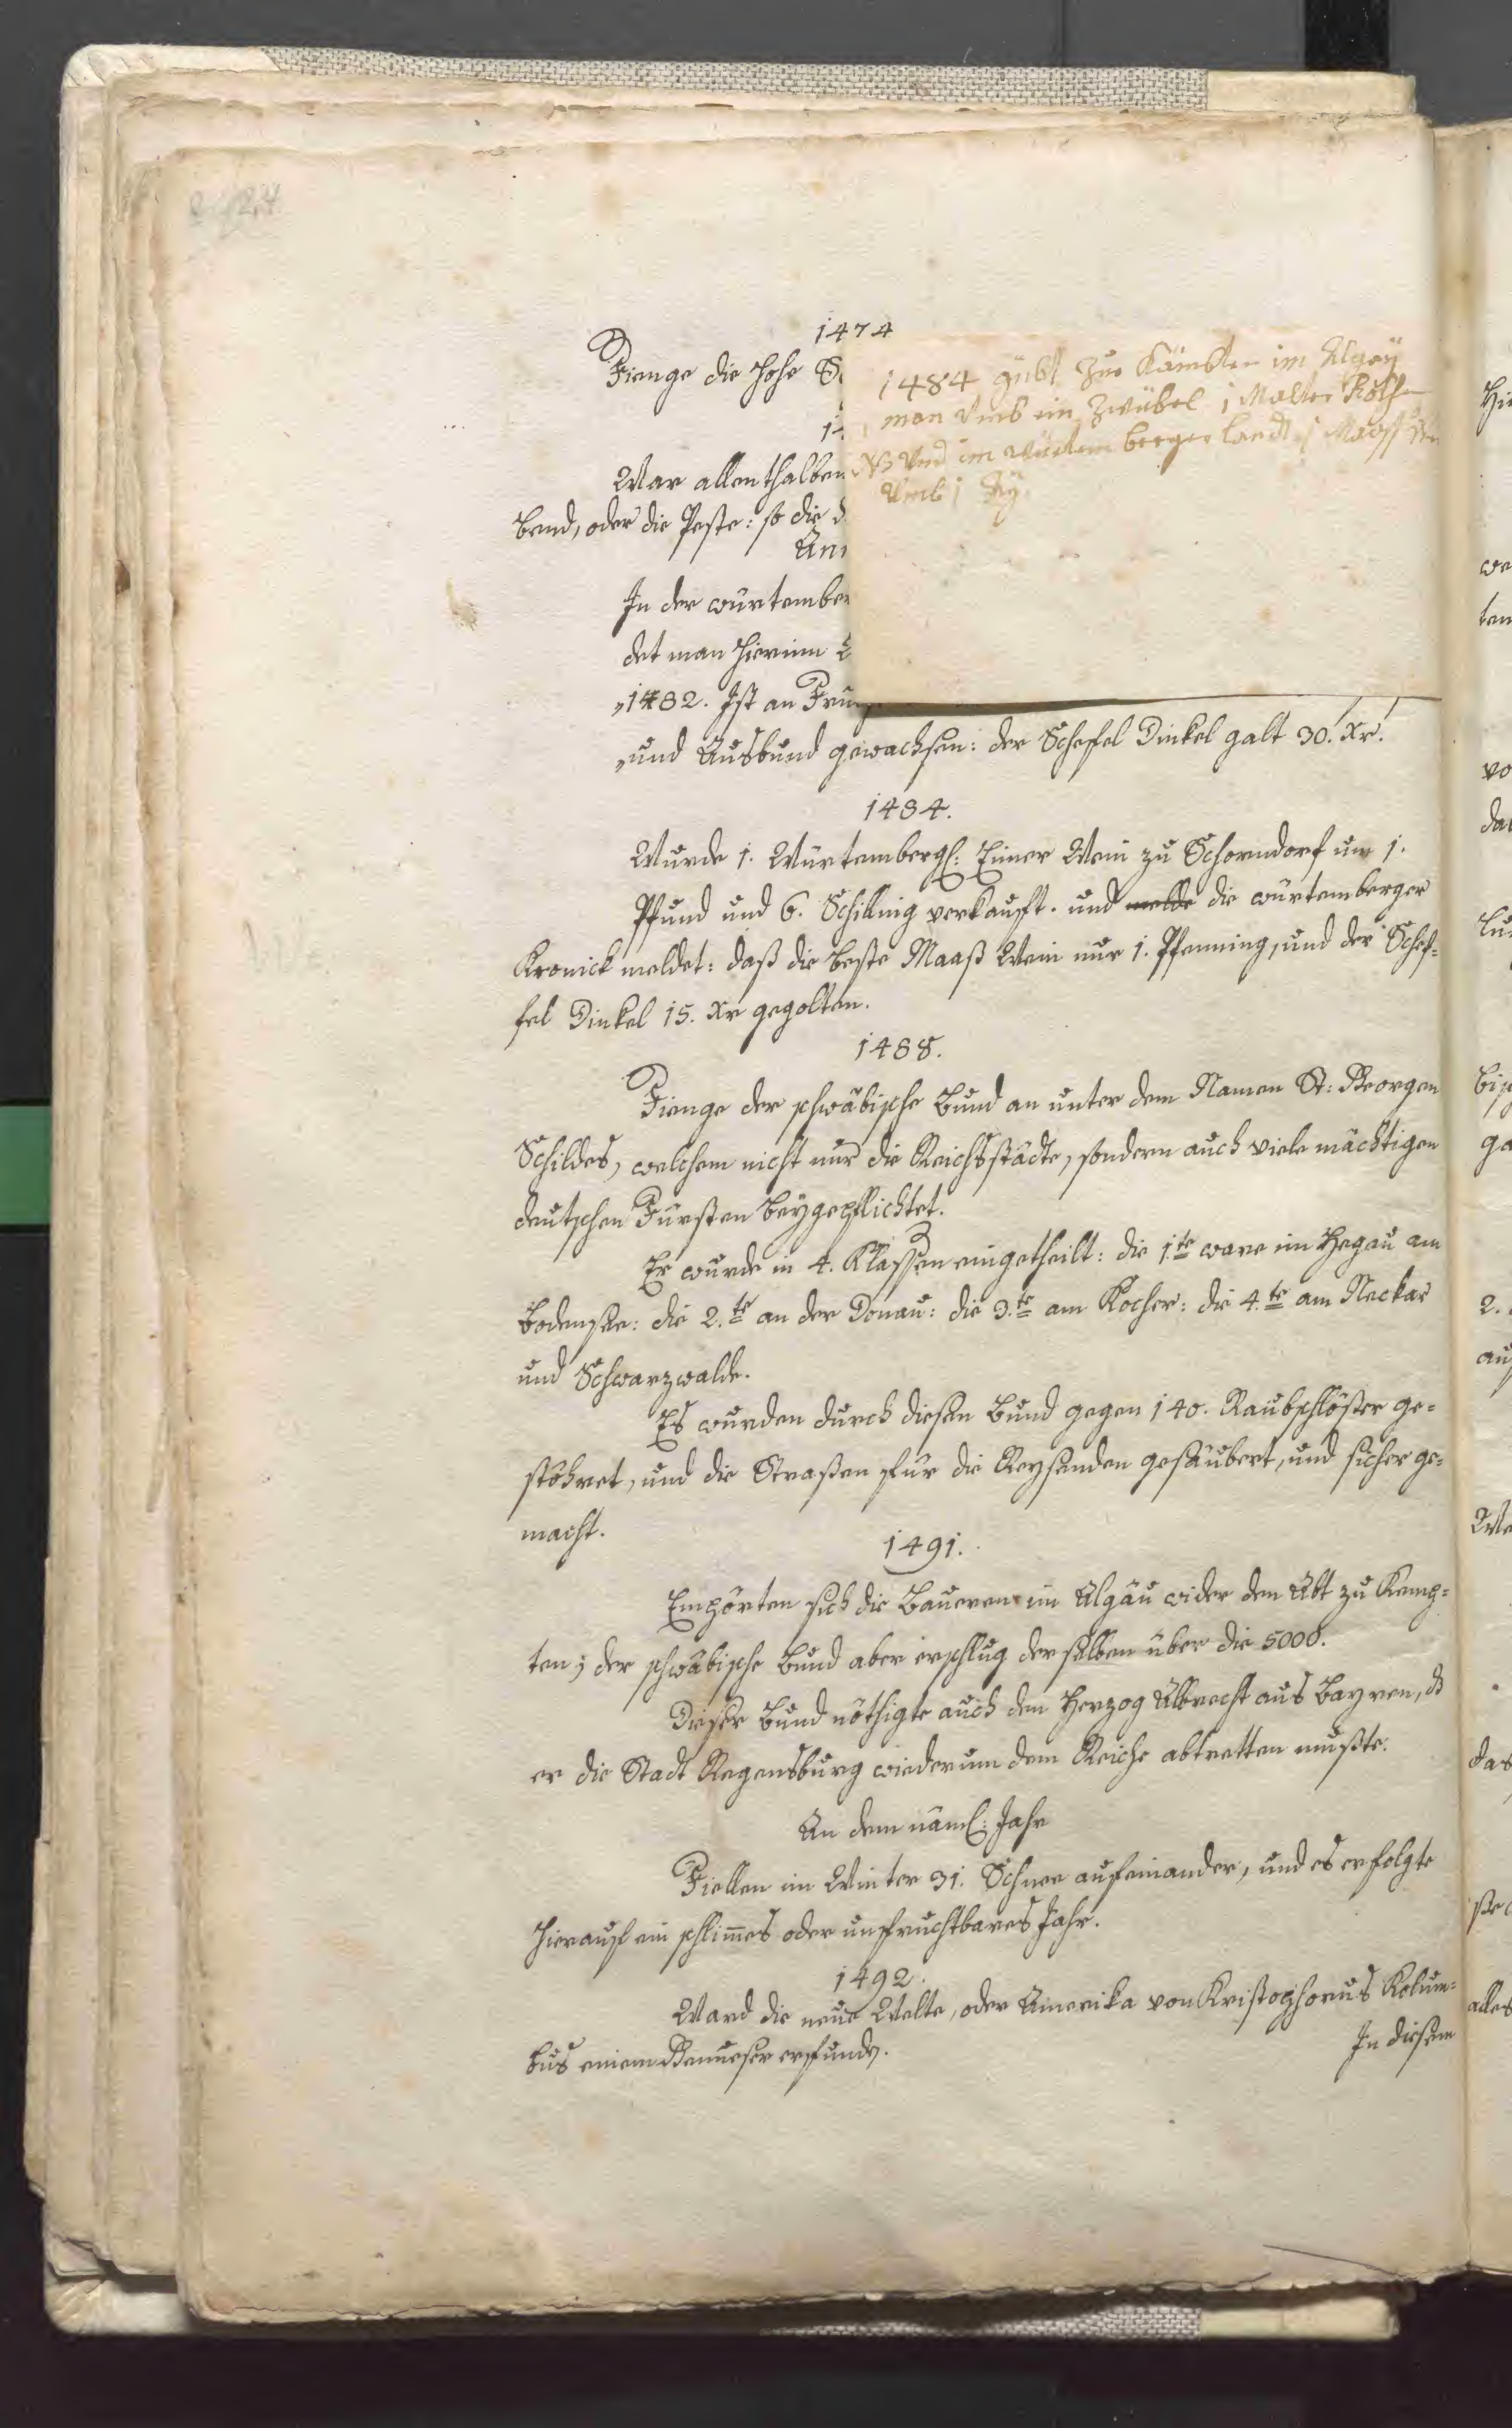 1474
Fienge die hohe S
War allenthalben
bend, oder die Peste: so die d
An
In der würtember
det man hierinn
„1482. Ist an Fru
„und Ausbund gewachsen: der Scheffel Dinkel galt 30. Xr.
1484 gübt zue Kämbten im Algöy
man umb ein Zwübel 1 Malter
und im würtemberger landt 1 Maaß
umb 1
1484.
Wurde 1. Würtembergl: Eimer Wein zu Schorndorf um 1.
Pfund und 6. Schilling verkauft. und melde die würtemberger
Kronick meldet: daß die beste Maaß Wein nur 1. Pfenning, und der Schef-
fel Dinkel 15. Xr gegolten.
1488.
Fienge der schwäbische Bund an unter dem Namen St: Georgen
Schildes, welchem nicht nur die Reichsstädte, sondern auch viele mächtigen
deutschen Fürsten beygepflichtet.
Er wurde in 4. Klassen eingetheilt: die 1.te ware im Hegau am
Bodensee: die 2.te an der Donau: die 3.te am Kocher: die 4.te am Neckar
und Schwarzwalde.
Es wurden durch diesen Bund gegen 140. Raubschlösser ge-
stöhret, und die Straßen für die Reysenden gesäubert, und sicher ge-
macht.
1491.
Empörten sich die Baueren im Algäu wider den Abt zu Kemp-
ten; der schwäbische Bund aber erschlug derselben über die 5000.
Dieser Bund nöthigte auch den Herzog Albrecht aus Bayren, ds
er die Stadt Regensburg wiederum dem Reiche abtretten mußte.
An dem näml: Jahr
Fiellen im Winter 31. Schnee aufeinander, und es erfolgte
hierauf ein schlim̅es oder unfruchtbares Jahr.
1492.
Ward die neue Welte, oder Amerika von Kristophorus Kolum-
bus einem Genueser erfunden.
In diesem